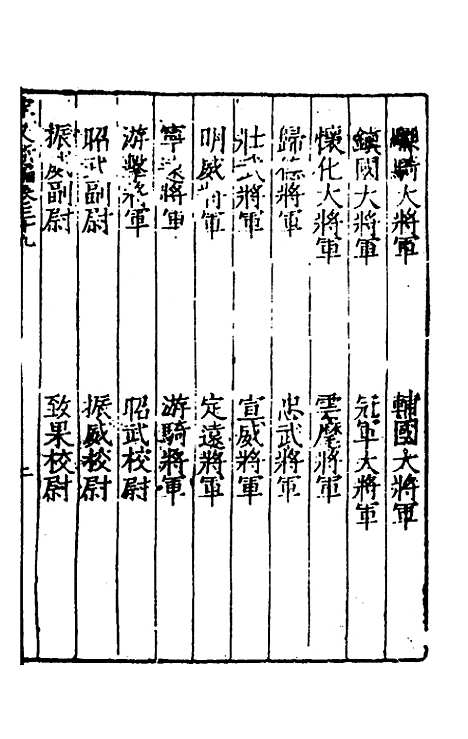 驃騎大將軍　輔國大將軍
鎮國大將軍　冠軍大將軍
懷化大將軍　雲麾將軍
歸德將軍　忠武將軍
壯武將軍　宣威將軍
明威將軍　定遠將軍
寧遠將軍　游騎將軍
游擊將軍　昭武校尉
昭武副尉　振威校尉
振威副尉　致果校尉
文 卷三十九